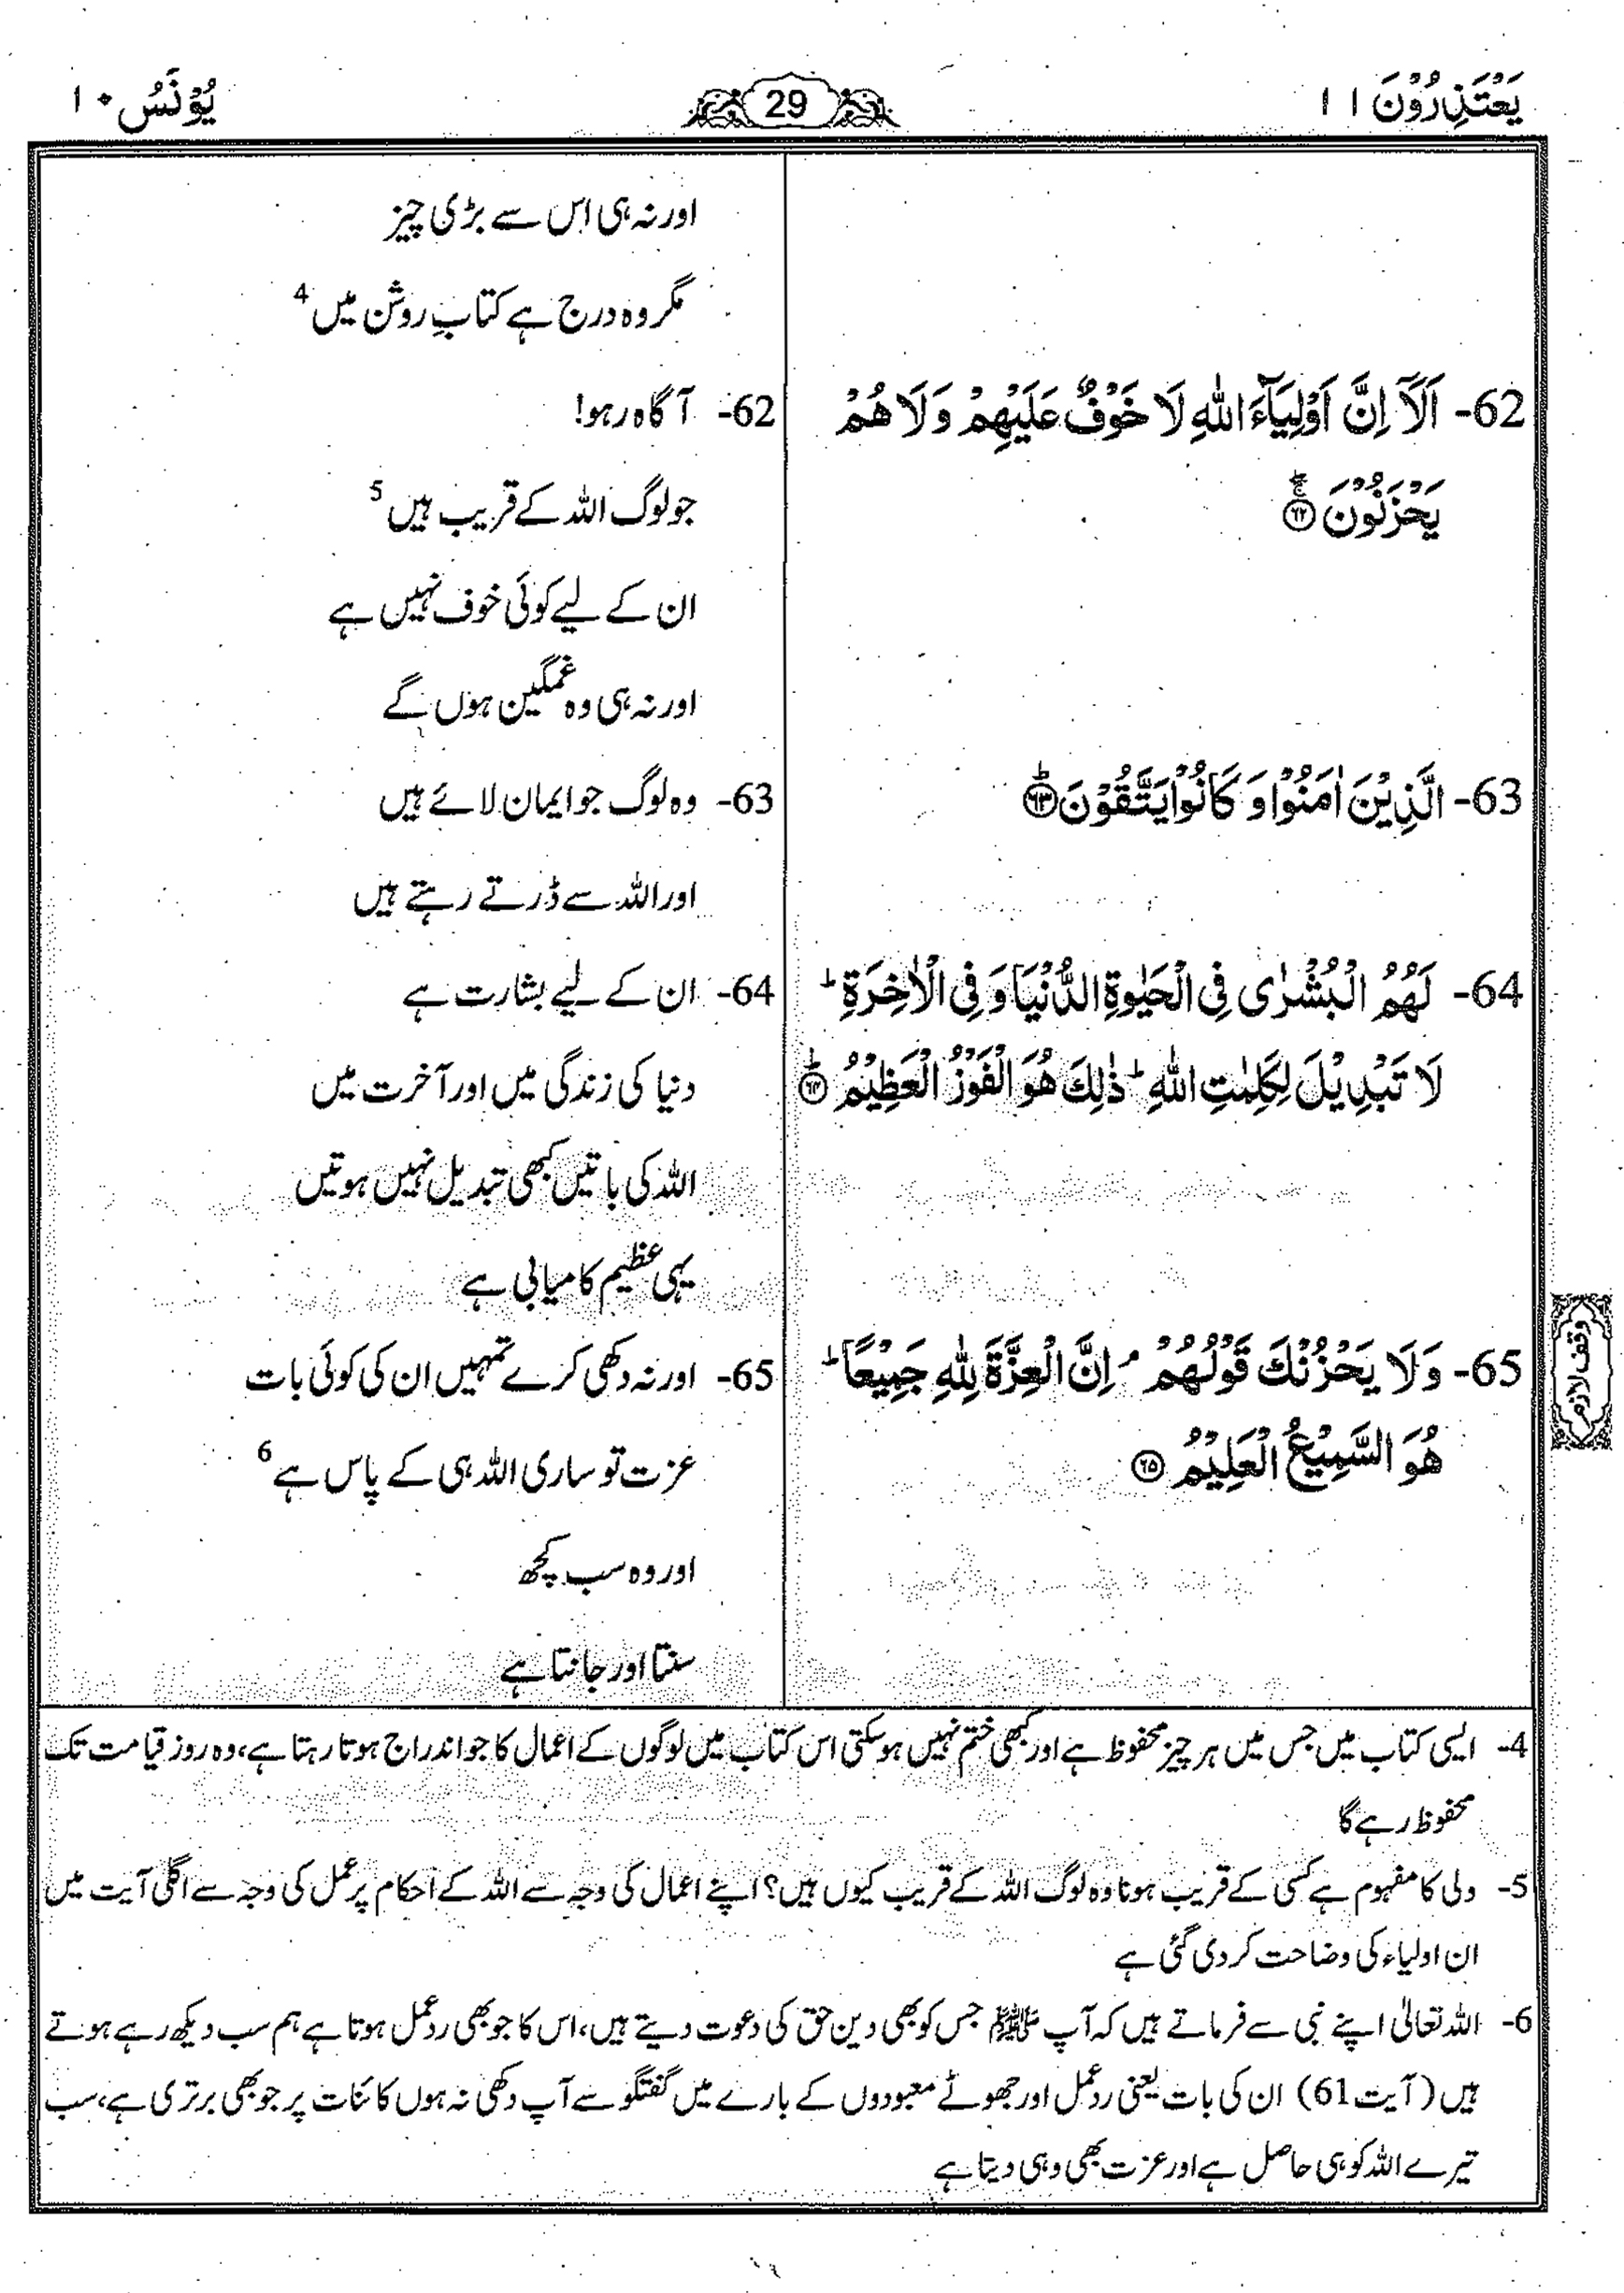 یَعْتَذِرُوْنَ ۱۱
29
یُوْنَسُ ۱۰
اور نہ ہی اس سے بڑی چیز
مگر وہ درج ہے کتابِ روشن میں 4
62- اَلَاۤ اِنَّ اَوْلِیَآءَ اللّٰهِ لَا خَوْفٌ عَلَیْهِمْ وَ لَا هُمْ
یَحْزَنُوْنَ ﴿۶۲﴾ ۚۖ
62- آگاہ رہو!
جو لوگ اللہ کے قریب ہیں 5
ان کے لیے کوئی خوف نہیں ہے
اور نہ ہی وہ غمگین ہوں گے
63- الَّذِیْنَ اٰمَنُوْا وَ كَانُوْا یَتَّقُوْنَ ﴿۶۳﴾ؕ
63- وہ لوگ جو ایمان لائے ہیں
اور اللہ سے ڈرتے رہتے ہیں
64- لَهُمُ الْبُشْرٰى فِی الْحَیٰوةِ الدُّنْیَا وَ فِی الْاٰخِرَةِ ؕ
لَا تَبْدِیْلَ لِكَلِمٰتِ اللّٰهِ ؕ ذٰلِكَ هُوَ الْفَوْزُ الْعَظِیْمُ ﴿۶۴﴾ؕ
64- ان کے لیے بشارت ہے
دنیا کی زندگی میں اور آخرت میں
اللہ کی باتیں کبھی تبدیل نہیں ہوتیں
یہی عظیم کامیابی ہے
65- وَ لَا یَحْزُنْكَ قَوْلُهُمْ ۘ اِنَّ الْعِزَّةَ لِلّٰهِ جَمِیْعًا ؕ
هُوَ السَّمِیْعُ الْعَلِیْمُ ﴿۶۵﴾
وقف لازم
65- اور نہ دکھی کرے تمہیں ان کی کوئی بات
عزت تو ساری اللہ ہی کے پاس ہے 6
اور وہ سب کچھ
سنتا اور جانتا ہے
4- ایسی کتاب میں جس میں ہر چیز محفوظ ہے اور کبھی ختم نہیں ہو سکتی اس کتاب میں لوگوں کے اعمال کا جو اندراج ہوتا رہتا ہے، وہ روز قیامت تک
محفوظ رہے گا
5- ولی کا مفہوم ہے کسی کے قریب ہونا وہ لوگ اللہ کے قریب کیوں ہیں؟ اپنے اعمال کی وجہ سے اللہ کے احکام پر عمل کی وجہ سے اگلی آیت میں
ان اولیاء کی وضاحت کر دی گئی ہے
6- اللہ تعالیٰ اپنے نبی سے فرماتے ہیں کہ آپ ﷺ جس کو بھی دین حق کی دعوت دیتے ہیں، اس کا جو بھی ردعمل ہوتا ہے ہم سب دیکھ رہے ہوتے
ہیں (آیت 61) ان کی بات یعنی ردعمل اور جھوٹے معبودوں کے بارے میں گفتگو سے آپ دکھی نہ ہوں کائنات پر جو بھی برتری ہے، سب
تیرے اللہ کو ہی حاصل ہے اور عزت بھی وہی دیتا ہے